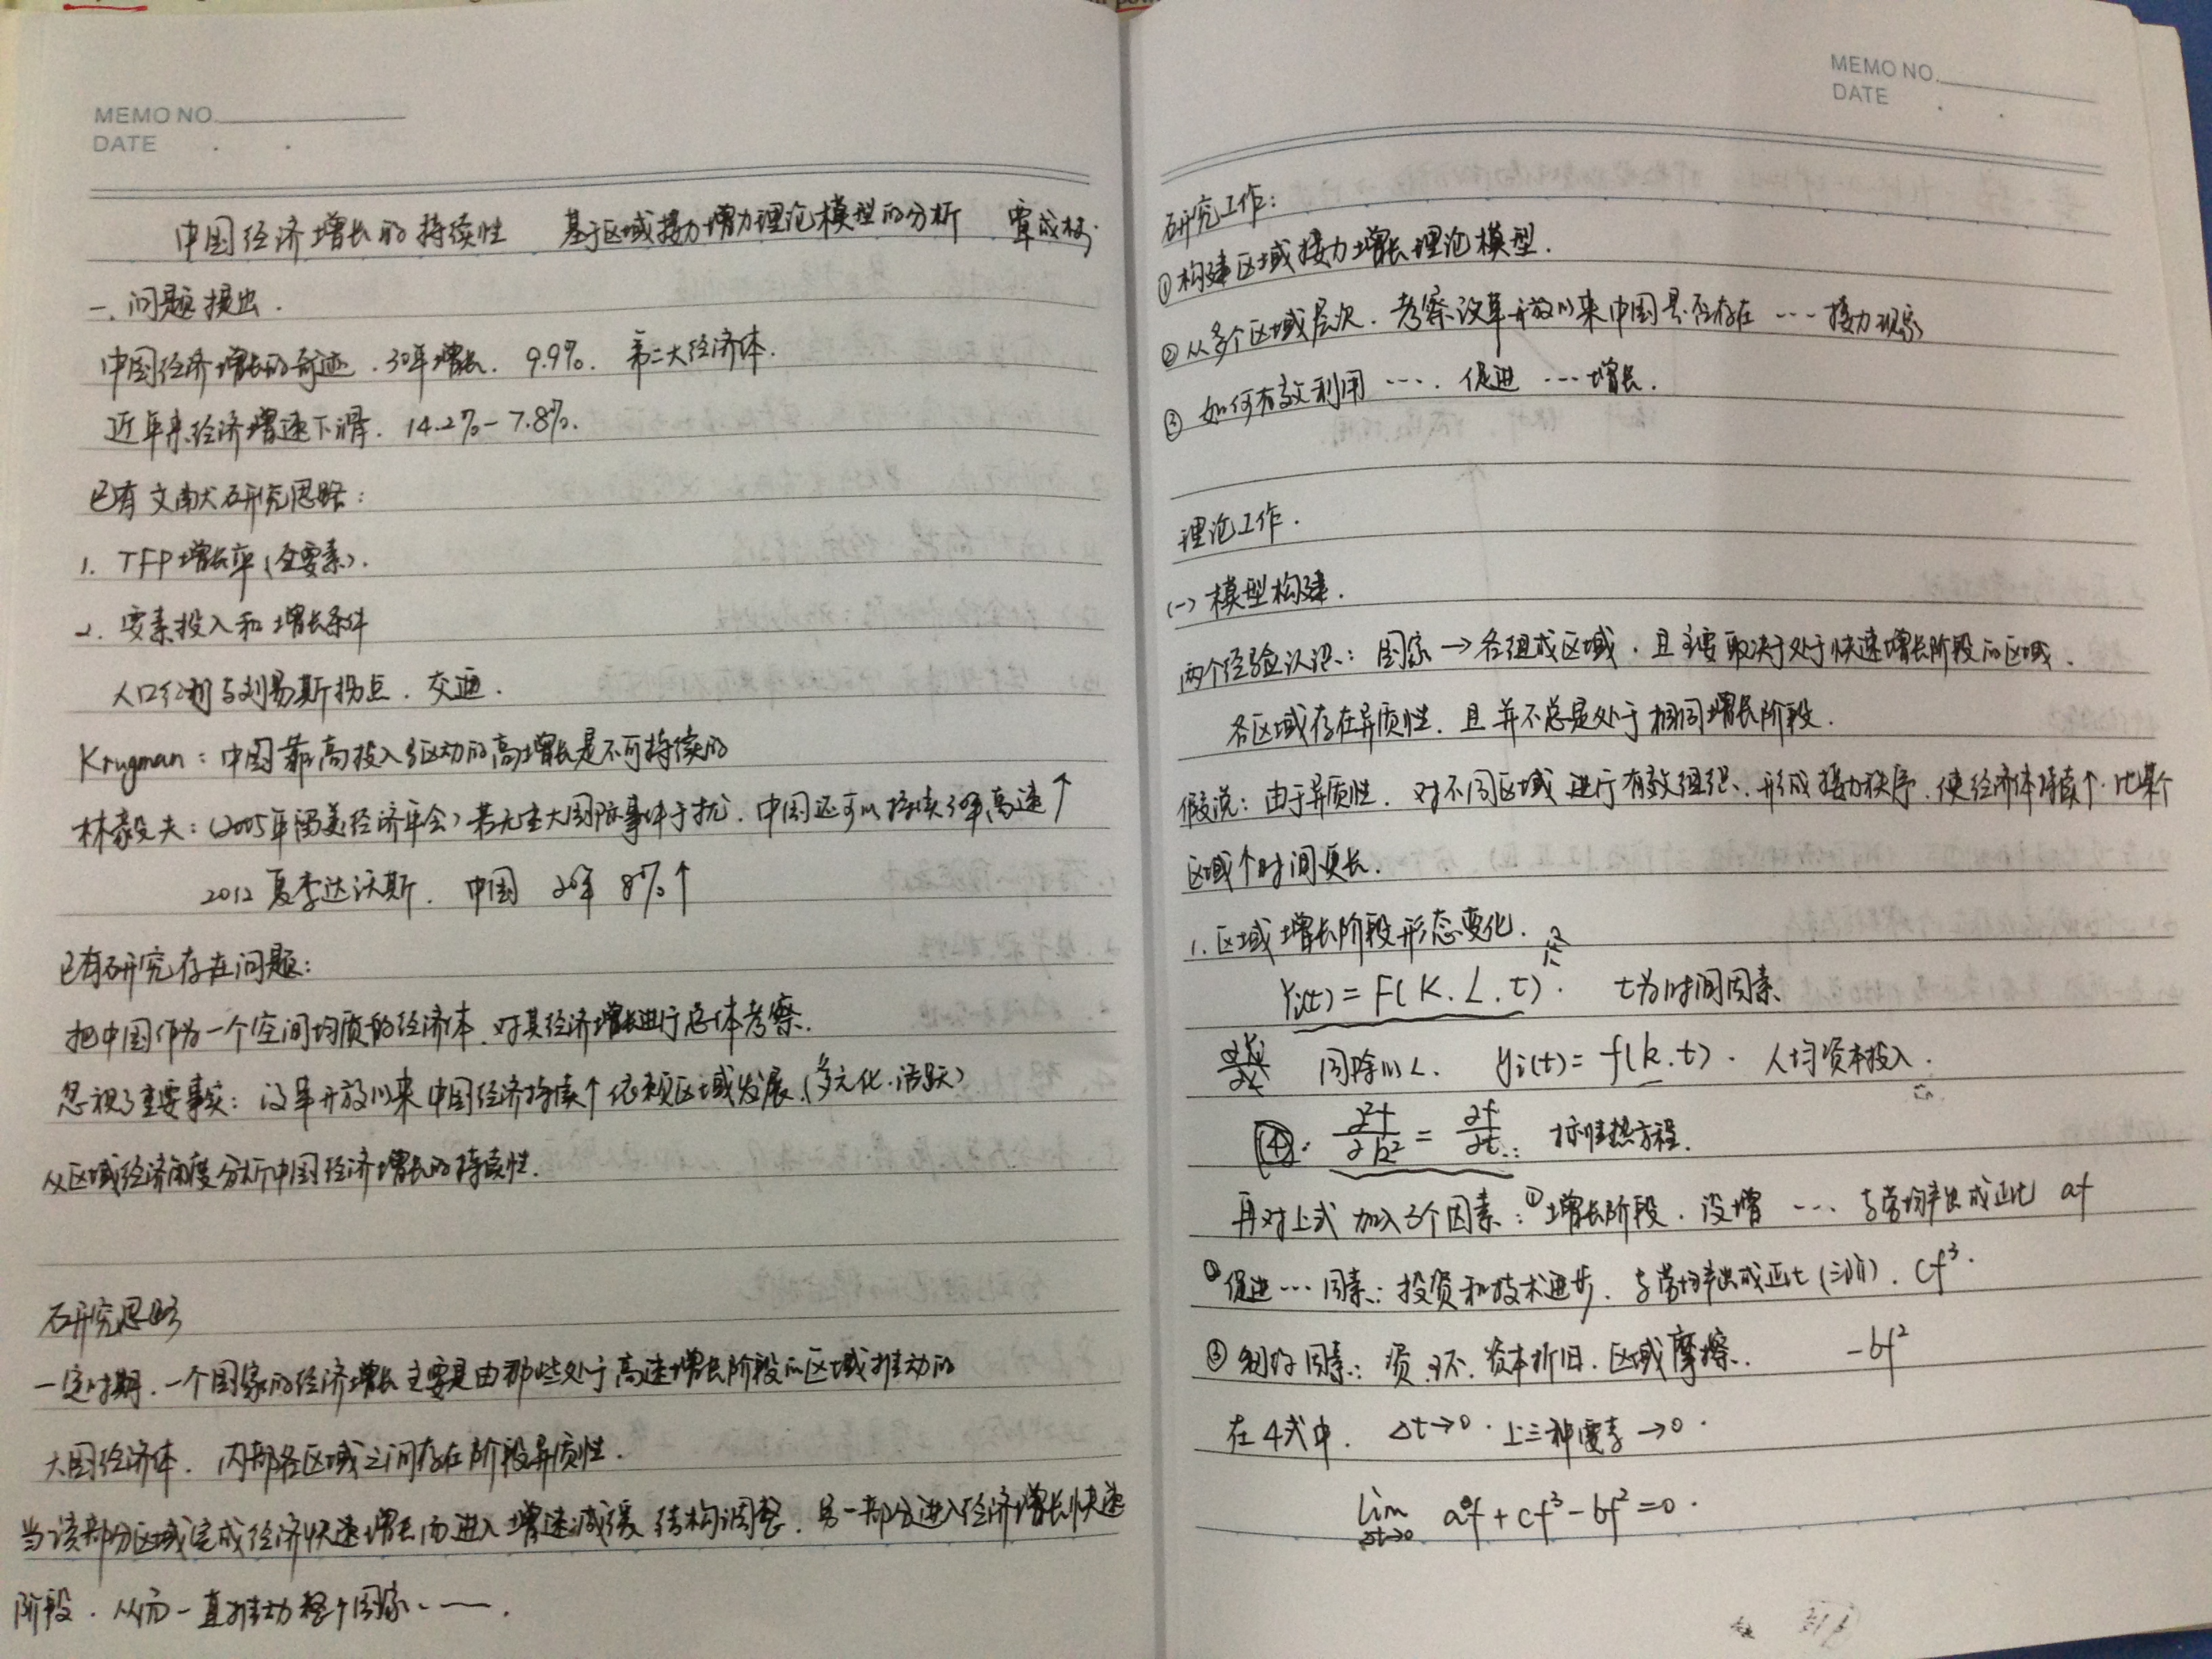 MEMO NO.
DATE
中国经济增长的持续性 基于区域接力增力理论模型的分析 覃成林
一. 问题提出.
中国经济增长的奇迹. 30年增长. 9.9%. 第二大经济体.
近年来经济增速下滑. 14.2%-7.8%.
已有文献研究思路:
1. TFP增长率(全要素).
2. 要素投入和增长条件
人口红利与刘易斯拐点. 交通.
Krugman: 中国靠高投入驱动的高增长是不可持续的
林毅夫:(2005年留美经济年会)若无重大国际事件干扰. 中国还可以持续30年高速↑
2012 夏季达沃斯. 中国 20年 8%↑
已有研究存在问题:
把中国作为一个空间均质的经济体. 对其经济增长进行总体考察.
忽视了重要事实: 改革开放以来中国经济持续↑依赖区域发展.(多元化.活跃)
从区域经济角度分析中国经济增长的持续性.
研究思路
一定时期. 一个国家的经济增长主要是由那些处于高速增长阶段的区域推动的
大国经济体. 内部各区域之间存在阶段异质性.
当该部分区域完成经济快速增长而进入增速减缓 结构调整. 另一部分进入经济增长快速
阶段. 从而一直推动整个国家……
MEMO NO.
DATE
研究工作:
①构建区域接力增长理论模型.
②从多个区域层次. 考察改革开放以来中国是否存在 … 接力现象
③ 如何有效利用 …. 促进 … 增长.
理论工作.
(一) 模型构建.
两个经验认识: 国家→各组成区域. 且主要取决于处于快速增长阶段的区域.
各区域存在异质性. 且并不总是处于相同增长阶段.
假说: 由于异质性. 对不同区域进行有效组织. 形成接力秩序. 使经济体持续↑. 比某个
区域↑时间更长.
1. 区域增长阶段形态变化.
Yi(t) = F(K. L. t). t为时间因素
同除以L. yi(t) = f(k.t). 人均资本投入.
④. ∂²f/∂k² = ∂f/∂t. 标准热方程.
再对上式加入3个因素: ①增长阶段. 设增 … 与劳均产出成正比 af
②促进…因素: 投资和技术进步. 与劳均产出成正比(三阶). cf³.
③制约因素: 资.环. 资本折旧. 区域摩擦. -bf²
在4式中. Δt→0. 上三种要素→0.
lim Δt→0 af + cf³ - bf² = 0.